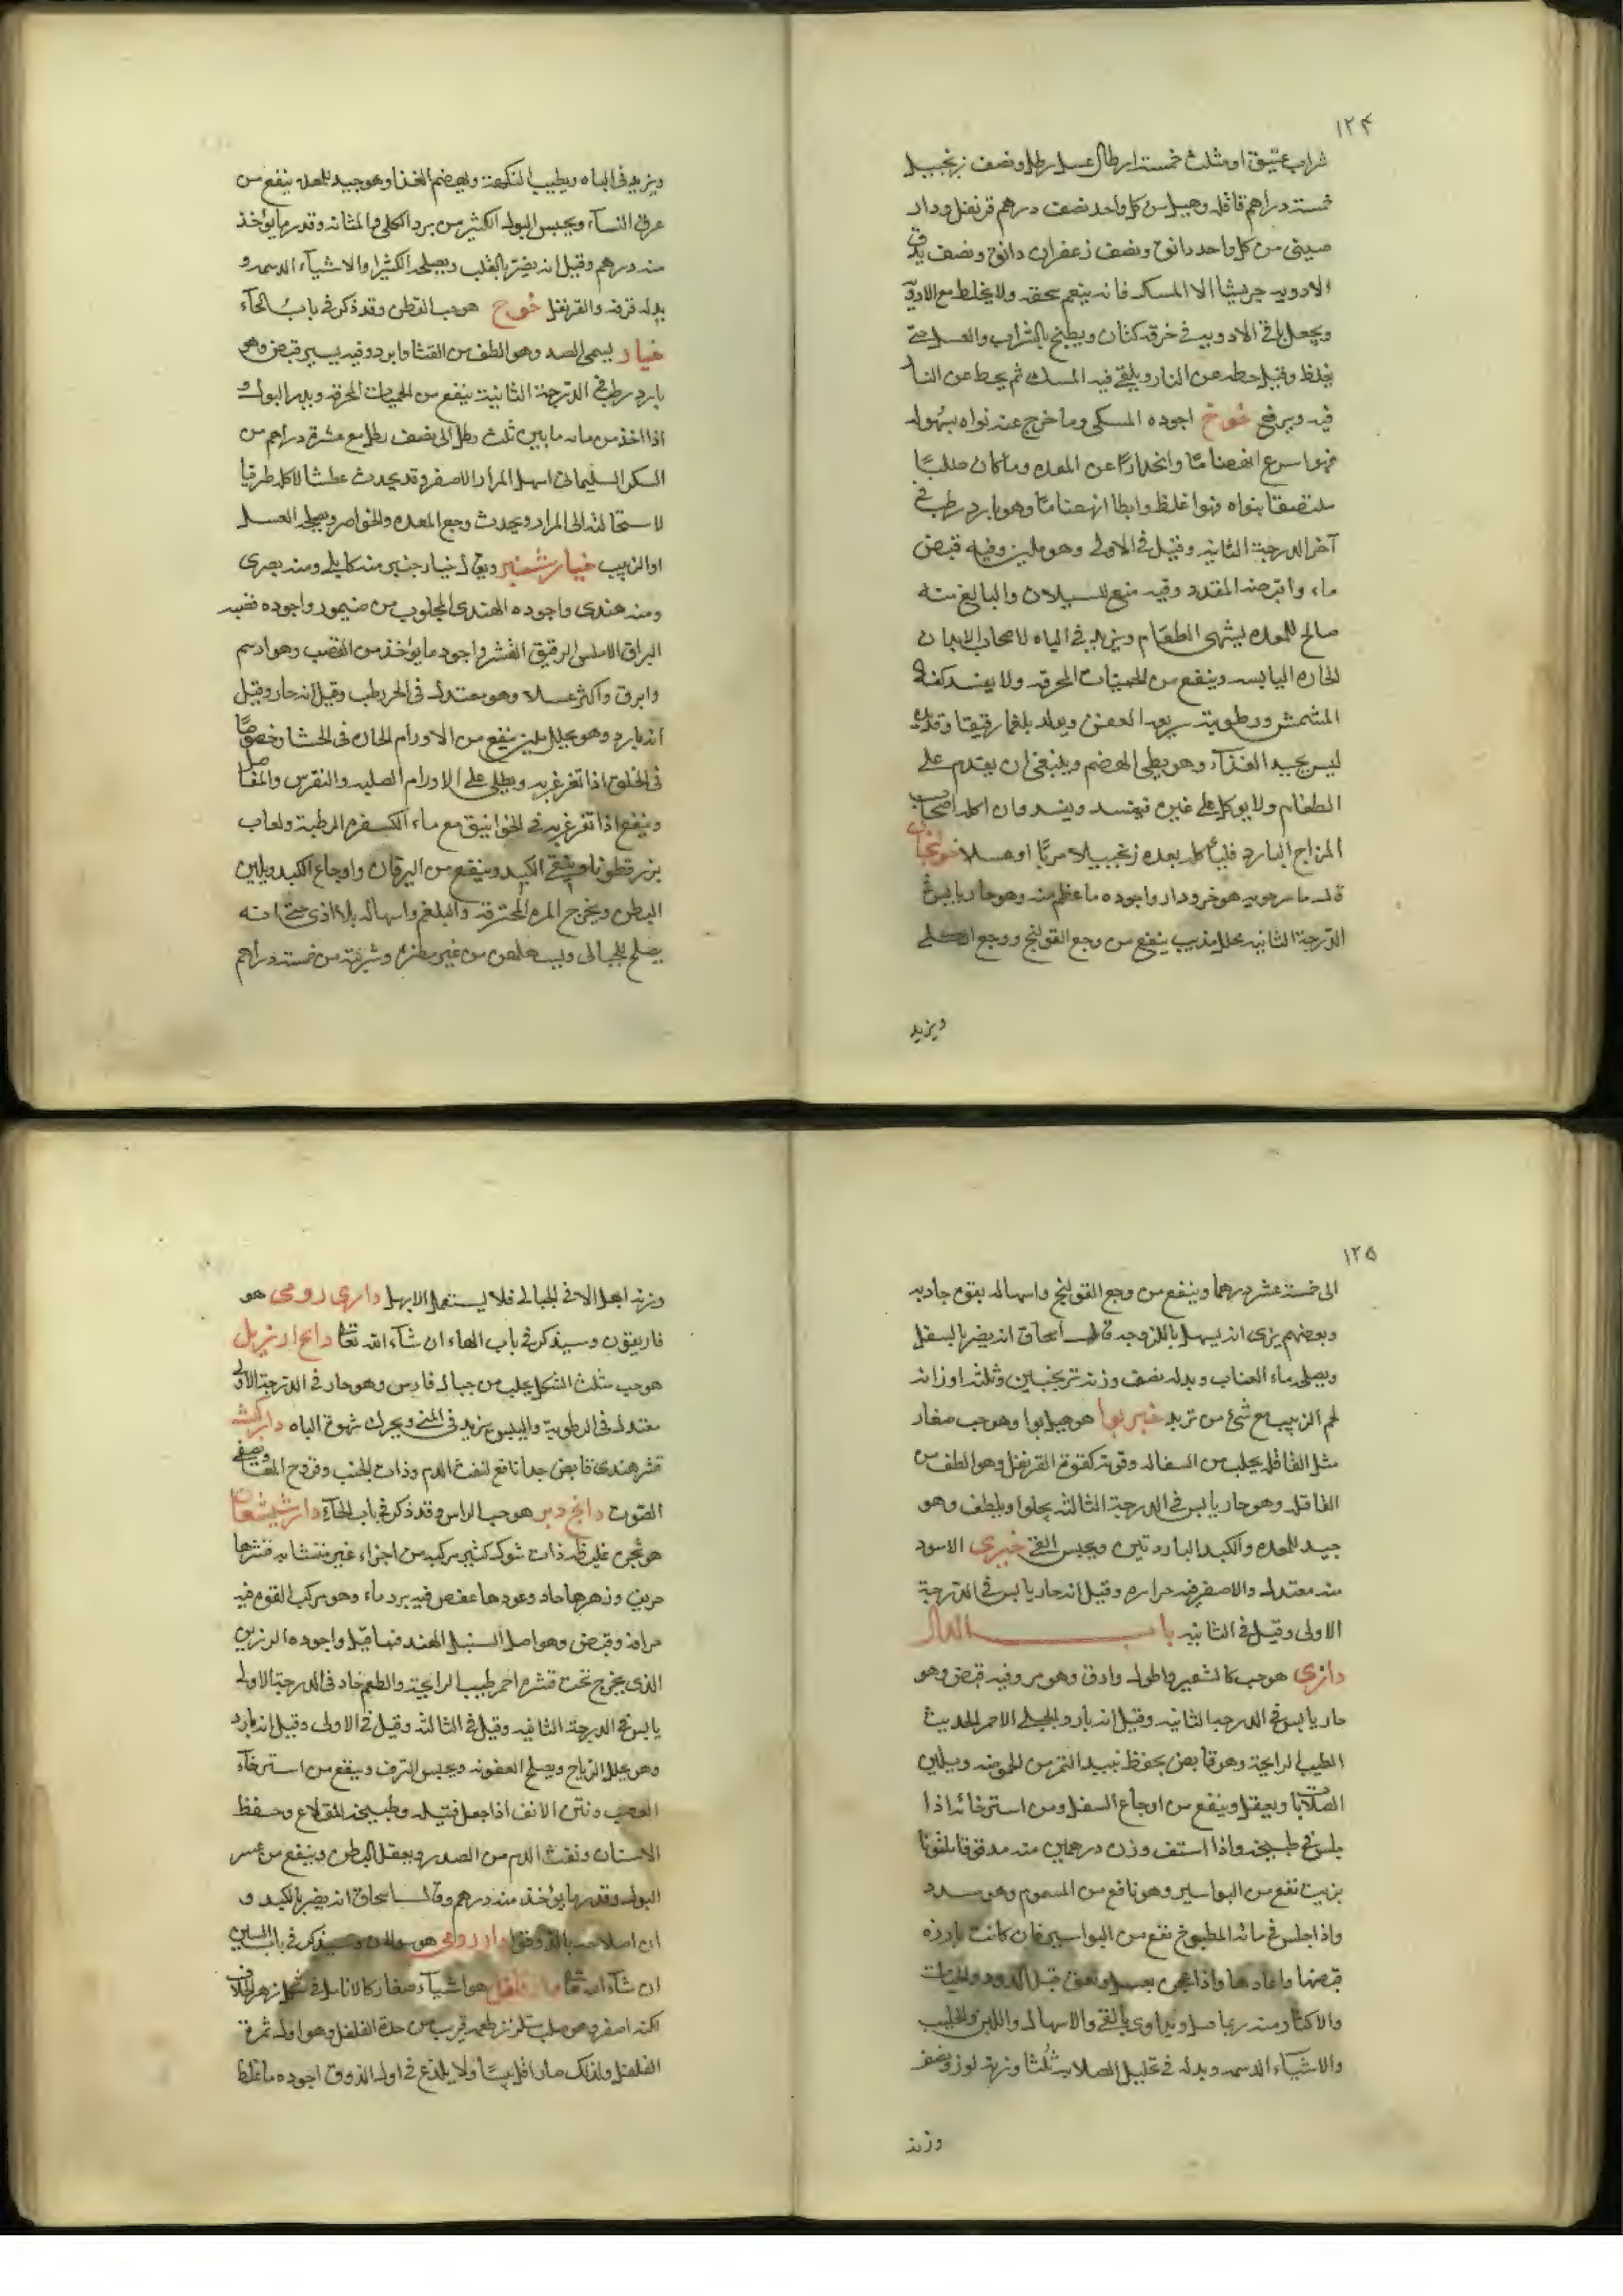 ١٢٤
شراب عتيق او مثلث خمسة ارطال عسل رطل ونصف زنجبيل
خمسة دراهم قاقله وهيل من كل واحد نصف درهم قرنفل ودار
صينى من كل واحد دانق ونصف زعفران دانق ونصف يدق
الادويه جريشا الا المسك فانه ينعم سحقه ولا يخلط مع الادوية
ويجعل باقى الادويه فى خرقه كتان ويطبخ بالشراب والعسل حتى
يغلظ وقبل حطه عن النار ويلقى فيه المسك ثم يحط عن النار
فيه ويرفع خوخ اجوده المسكى وما خرج عنه نواه بسهوله
فهو اسرع انهضاما وانحدارا عن المعده وما كان صلبا
ملتصقا بنواه فهو اغلظ وابطا انهضاما وهو بارد رطب فى
آخر الدرجة الثانيه وقيل فى الاولى وهو ملين وفيه قبض
ماء واقبضه المقدد وفيه منع للسيلان والبالغ منه
صالح للمعده يشهى الطعام ويزيد فى الباه لاصحاب الابدان
الحاره اليابسه وينفع من الحميات المحرقه ولا يفسد كفساد
المشمش ورطوبته سريعه العفن ويولد بلغما رقيقا وقديده
ليس بجيد الغذآء وهو بطى الهضم وينبغى ان يقدم على
الطعام ولا يوكل على غيره فيفسد ويفسد وان اكله اصحاب
المزاج البارد فليأكل بعده زنجبيلا مربا او عسلا خولنجان
قال ماسرجويه هو خرودار واجوده ما عظم منه وهو حار يابس فى
الدرجة الثانيه محلل مذيب ينفع من وجع القولنج ووجع الكلى
ويزيد
ويزيد فى الباه ويطيب النكهة ويهضم الغذا وهو جيد للمعده ينفع من
عرق النسآء ويحبس البول الكثير من برد الكلى والمثانه وقدر ما يؤخذ
منه درهم وقيل انه يضر بالقلب ويصلحه الكثيرا والاشيآء الدسمه و
بدله قرفه والقرنفل خوج هو حب القطن وقد ذكر فى باب الحآء
خيار يسمى القثد وهو الطف من القثا وابرد وفيه يسير قبض وهو
بارد رطب فى الدرجة الثانية ينفع من الحميات المحرقه ويدر البول و
اذا اخذ من مائه ما بين ثلث رطل الى نصف رطل مع عشرة دراهم من
السكر السليمانى اسهل المرار الاصفر وقد يحدث عطشا لاكله طريا
لاستحالته الى المرار ويحدث وجع المعده والخواصر ويصلحه العسل
او الزبيب خيار شنبر ويقال خيار جنبر منه كابلى ومنه بصرى
ومنه هندى واجوده الهندى المجلوب من صيمور واجوده قصبه
البراق الاملس الرقيق القشر واجود ما يؤخذ من القصب وهو ادسم
وابرق واكثر عسلا وهو معتدل فى الحر رطب وقيل انه حار وقيل
انه بارد وهو محلل ملين ينفع من الاورام الحاره فى الحشا وخصوصًا
فى الحلق اذا تغرغر به ويطلى على الاورام الصلبه والنقرس والمفاصل
وينفع اذا تغرغر به فى الخوانيق مع ماء الكسفره الرطبة ولعاب
بزر قطونا وينقى الكبد وينفع من اليرقان واوجاع الكبد ويلين
البطن ويخرج المره المحترقه والبلغم واسهاله بلا اذى حتى انه
يصلح للحبالى ويسهلهن من غير مضره وشربته من خمسة دراهم
١٢٥
الى خمسة عشر درهما وينفع من وجع القولنج واسهاله بقوه جاذبه
وبعضهم يرى انه يسهل باللزوجه قال اسحاق انه يضر بالسفل
ويصلحه ماء العناب وبدله نصف وزنه ترنجبين وثلثه اوزانه
لحم الزبيب مع شئ من تربد خير بوا هو هيل بوا وهو حب صغار
مثل القاقله يجلب من السفاله وقوته كقوة القرنفل وهو الطف من
القاقله وهو حار يابس فى الدرجة الثالثه يجلوا ويلطف وهو
جيد للمعده والكبد الباردتين ويحبس القئ خيرى الاسود
منه معتدل والاصفر فيه حراره وقيل انه حار يابس فى الدرجة
الاولى وقيل فى الثانيه باب الدال
دازى هو حب كالشعير واطول وادق وهو مر وفيه قبض وهو
حار يابس فى الدرجه الثانيه وقيل انه بارد والجبلى الاحمر الحديث
الطيب الرايحة وهو قابض يحفظ نبيذ التمر من الحموضه ويلين
الصلابات ويعقل وينفع من اوجاع السفل ومن استرخائه اذا
جلس فى طبيخه واذا استف وزن درهمين منه مدقوقا ملتوتا
بزيت نفع من البواسير وهو نافع من السموم وهو يسدد
واذا جلس فى مائه المطبوخ نفع من البواسير فان كانت بارزه
قبضها واعادها واذا عجن بعسل ولعق قتل الدود والحيات
والاكثار منه ربما قتل ويداوى بالقئ والاسهال واللبن الحليب
والاشيآء الدسمه وبدله فى تحليل الصلابه ثلثا وزنه لوز ونصف
وزنه
وزنه ابهل الا فى الحبالى فلا يستعمل الابهل دارى رومى هو
فاريقون وسيذكر فى باب الهاء ان شآء الله تعالى دانج ارنزيل
هو حب مثلث الشكل يجلب من جبال فارس وهو حار فى الدرجة الاولى
معتدل فى الرطوبة واليبس يزيد فى المنى ويحرك شهوة الباه دار كيسه
قشر هندى قابض جدا نافع لنفث الدم وذات الجنب وقروح المعا ويصفى
الصوت دانج دبر هو حب الراس وقد ذكر فى باب الحآء دار شيشعان
هو شجره غليظه ذات شوك كثير مركبه من اجزاء غير متشابه قشرها
حريف وزهرها حاد وعودها عفص فيه برد ماء وهو مركب القوه فيه
حرافة وقبض وهو اصل السنبل الهندى فيما قيل واجوده الرزين
الذى يخرج تحت قشره احمر طيب الرايحة والطعم حار فى الدرجة الاولى
يابس فى الدرجة الثانيه وقيل فى الثالثه وقيل فى الاولى وقيل انه بارد
وهو يحلل الرياح ويصلح العفونه ويحبس النزف وينفع من استرخآء
العصب ونتن الانف اذا جعل فتيله وطبيخه القلاع وحفظ
الاسنان ونفث الدم من الصدر ويعقل البطن وينفع من عسر
البول وقدر ما يؤخذ منه درهم وقال اسحاق انه يضر بالكبد و
ان اصلاحه بالزوفا دار رومى هو وسيذكر فى باب السين
ان شآء الله تعالى دار فلفل هو اشيآء صغار كالانامل فى شكل زهر الخلاف
لكنه اصفر وهو صلب متلزز طعمه قريب من حدة الفلفل وهو اول ثمرة
الفلفل ولذلك صار اقل يبسًا ولا يلذع فى اول الذوق اجوده ما غلظ